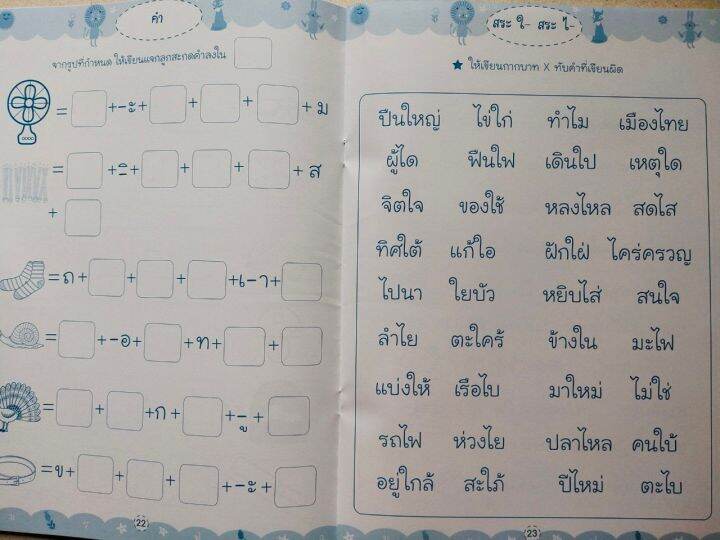 คำ
จากรูปที่กำหนด ให้เขียนแจกลูกสะกดคำลงใน
= +-ะ+ + + + ม
= +-ิ+ + + + ส
+
=ถ+ + + +เ-า+
= +-อ+ +ท+ +
= + +ก+ +-ู+
=ข+ + + +-ะ+
22
สระ ใ- สระ ไ-
★ ให้เขียนกากบาท X ทับคำที่เขียนผิด
ปืนใหญ่ ไข่ไก่ ทำไม เมืองไทย
ผู้ได ฟืนไฟ เดินใป เหตุใด
จิตใจ ของใช้ หลงไหล สดไส
ทิศใต้ แก้ไอ ฝักใฝ่ ไคร่ครวญ
ไปนา ใยบัว หยิบไส่ สนใจ
ลำไย ตะใคร้ ข้างใน มะไฟ
แบ่งให้ เรือไบ มาใหม่ ไม่ใช่
รถไฟ ห่วงไย ปลาไหล คนใบ้
อยู่ใกล้ สะใภ้ ปีไหม่ ตะไบ
23